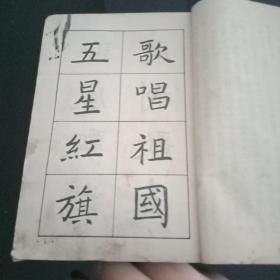 歌唱祖國
五星紅旗